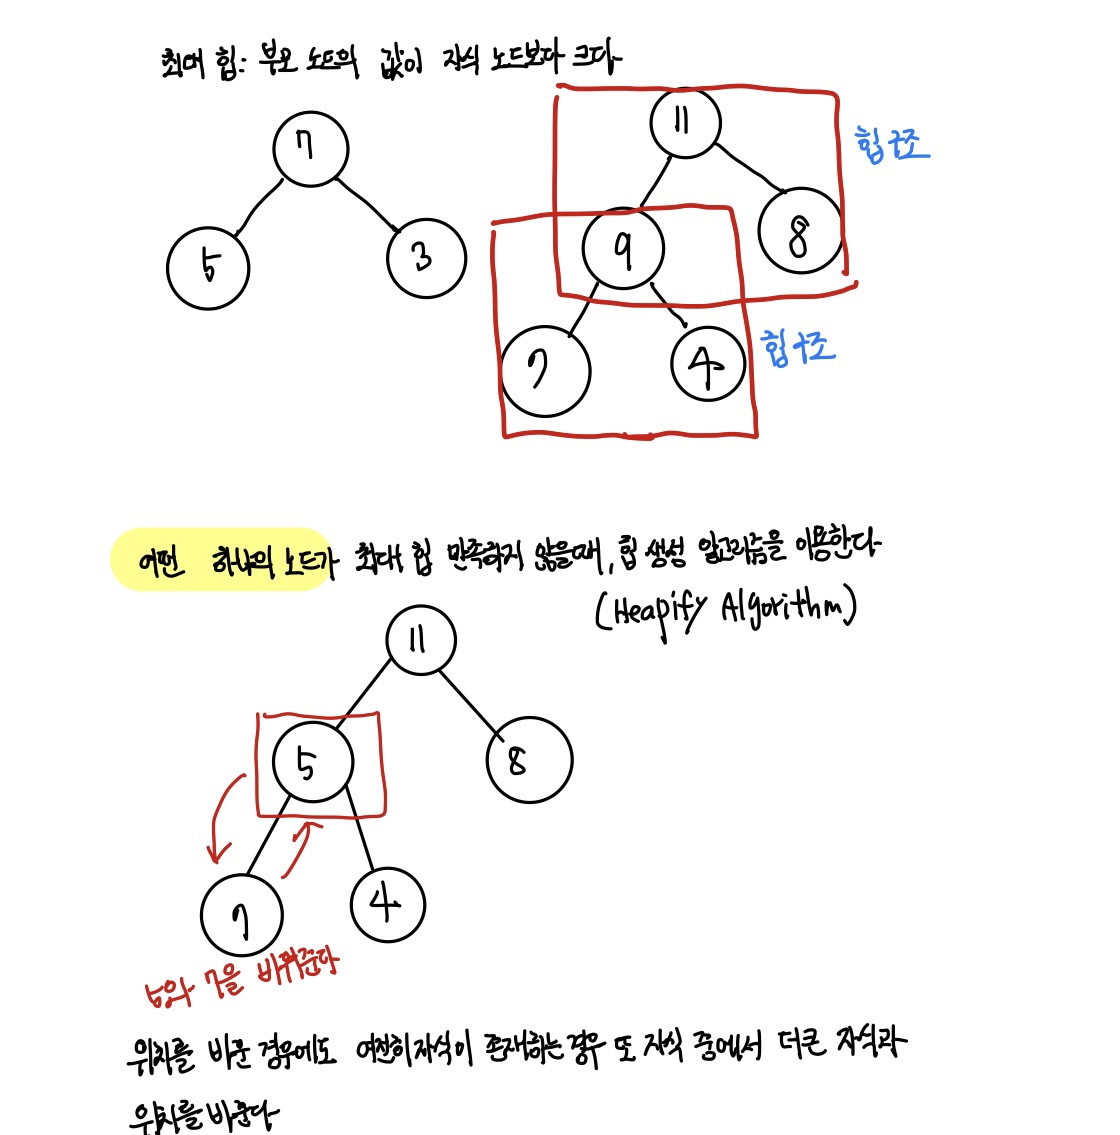 최대 힙: 부모 노드의 값이 자식 노드보다 크다
7
11
힙구조
5
3
9
8
7
4
힙구조
어떤 하나의 노드가 최대 힙 만족하지 않을때, 힙 생성 알고리즘을 이용한다
(Heapify Algorithm)
11
5
8
7
4
5와 7을 바꿔준다
위치를 바꾼 경우에도 여전히 자식이 존재하는 경우 또 자식 중에서 더 큰 자식과
위치를 바꾼다